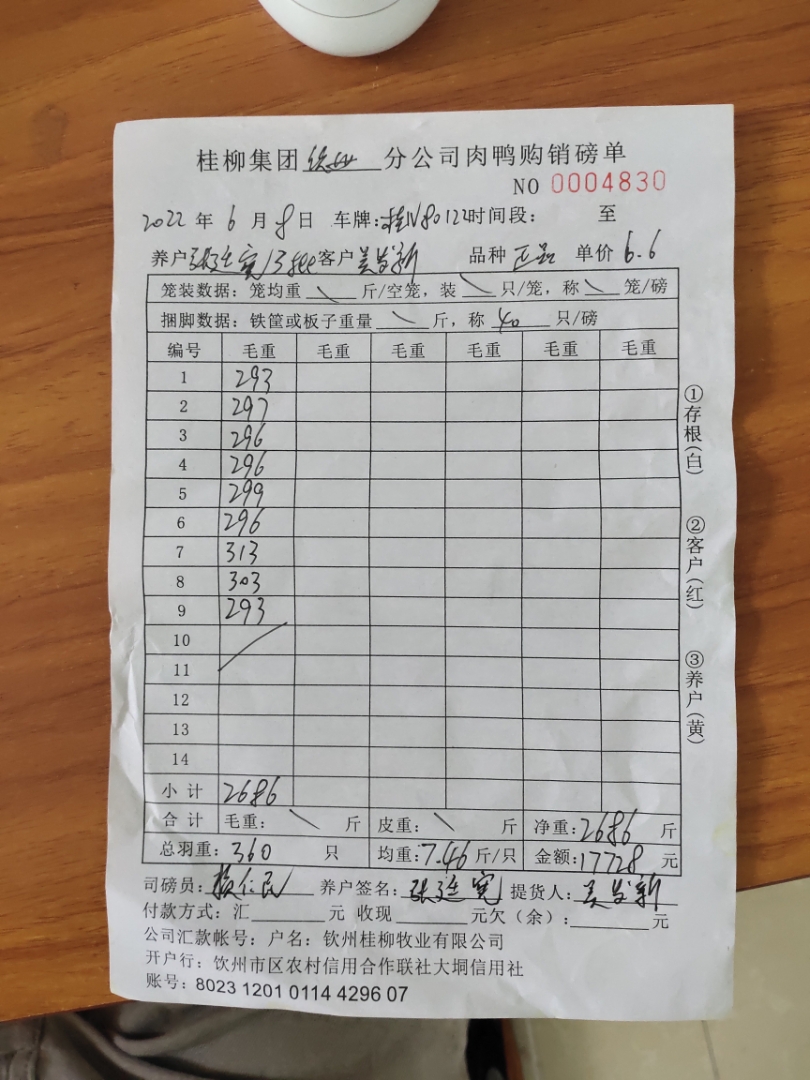 桂柳集团 牧业 分公司肉鸭购销磅单
NO 0004830
2022 年 6 月 8 日 车牌:桂N80122时间段: 至
养户 客户 品种 正品 单价 6.6
笼装数据: 笼均重 \ 斤/空笼, 装 \ 只/笼, 称 \ 笼/磅
捆脚数据: 铁筐或板子重量 \ 斤, 称 40 只/磅
编号 毛重 毛重 毛重 毛重 毛重 毛重
1 293
2 297
3 296
4 296
5 299
6 296
7 313
8 303
9 293
10
11
12
13
14
小计 2686
合计 毛重: \ 斤 皮重: \ 斤 净重: 2686 斤
总羽重: 360 只 均重: 7.46 斤/只 金额: 17728 元
司磅员: 养户签名: 张廷宪 提货人:
付款方式: 汇 元 收现 元欠(余): 元
公司汇款帐号: 户名: 钦州桂柳牧业有限公司
开户行: 钦州市区农村信用合作联社大垌信用社
账号: 8023 1201 0114 4296 07
①存根(白)
②客户(红)
③养户(黄)